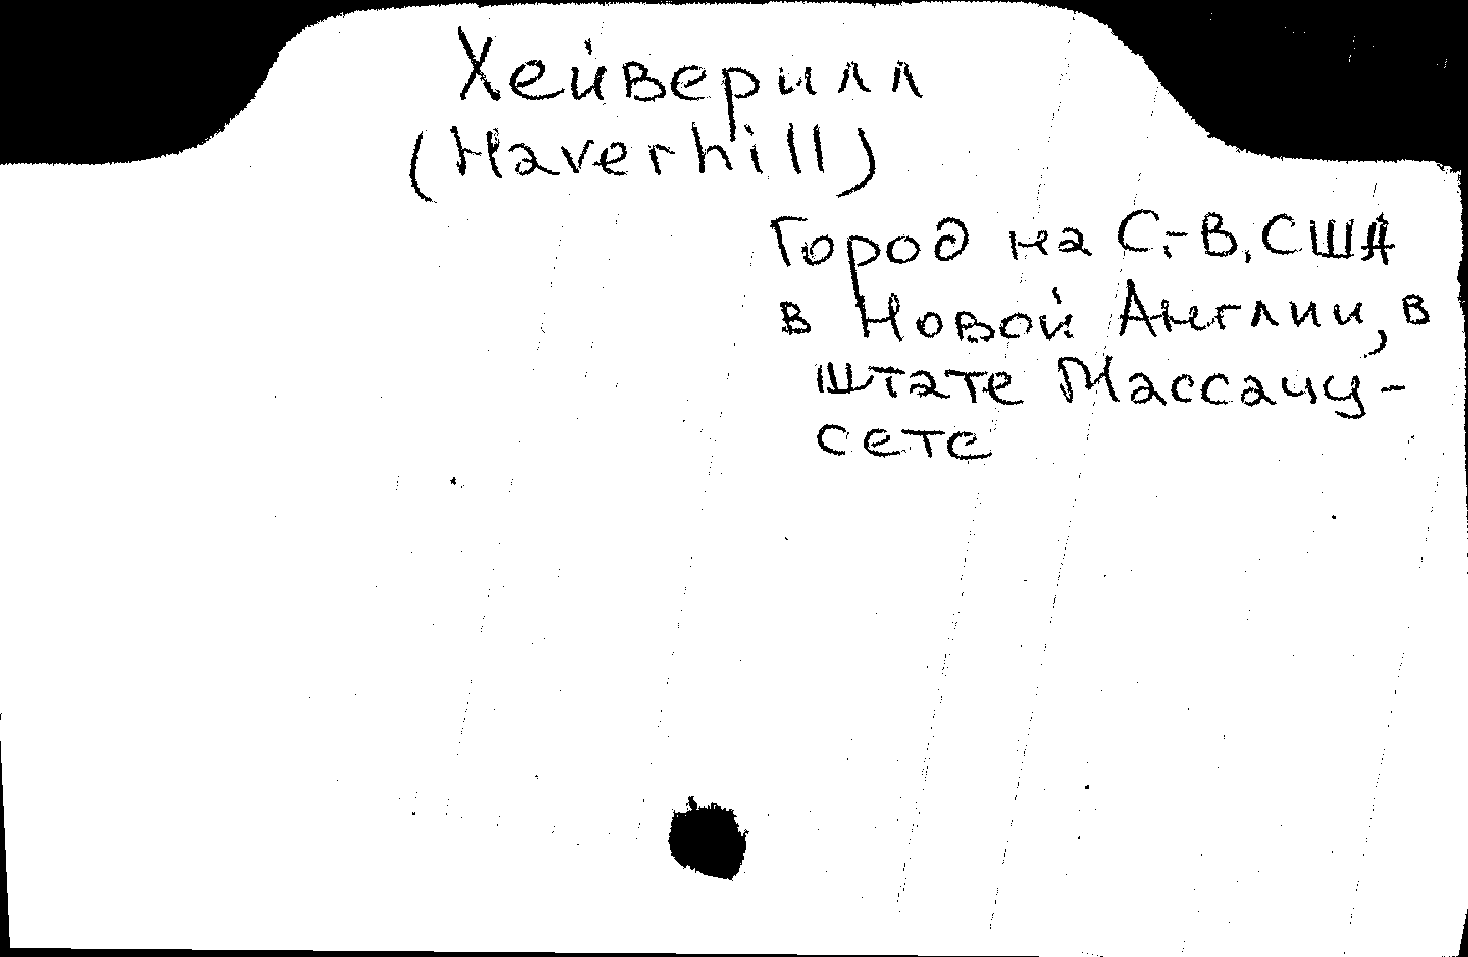 Хейверилл
(Haverhill)
Город на С.-В. США
в Новой Англии, в
штате Массачу-
сете